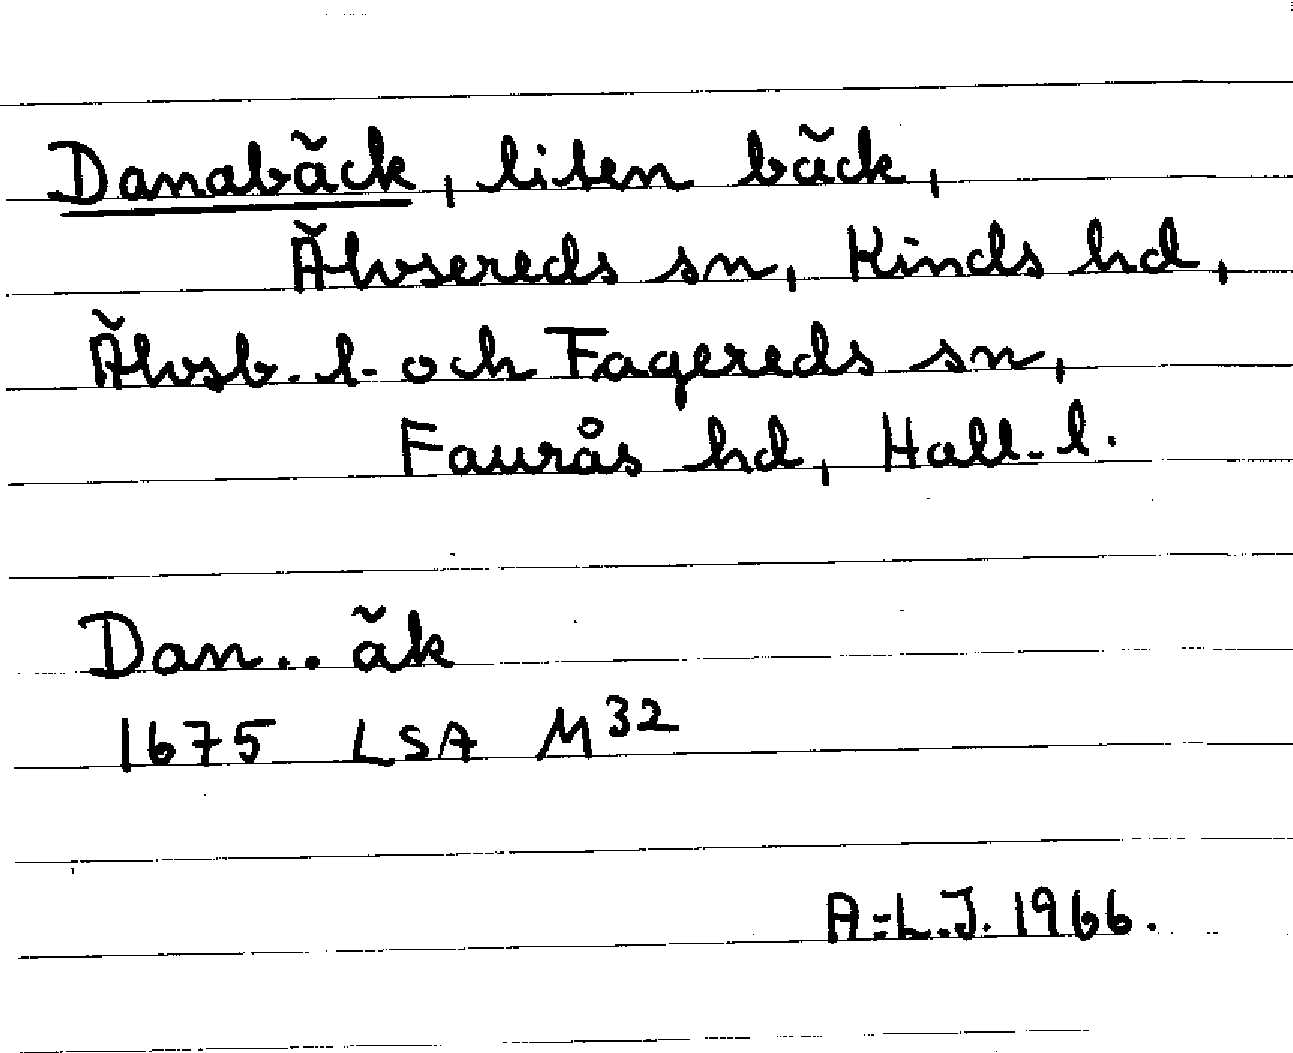 Danabäck, liten bäck,
Älvsereds sn, Kinds hd,
Älvsb. l. och Fagereds sn,
Faurås hd, Hall. l.
Dan.. äk
1675 LSA M³²
A=L.J. 1966.